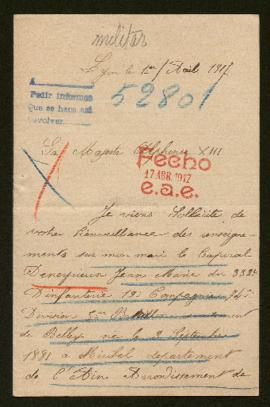 militar
Lyon le 1er Avril 1917
A
Pedir informes
que se hara así
52801
Sa Majesté Alphonse XIII
Fecho
17 ABR. 1917
e.a.e.
Je viens Sollicité de
votre bienveillance des renseigne
ments sur mon mari le Caporal
Jean Marie du
D'infanterie Compagnie
Division
de Belley né le 2 Septembre
1881 à Miribel département
de l'Ain Arrondissement de